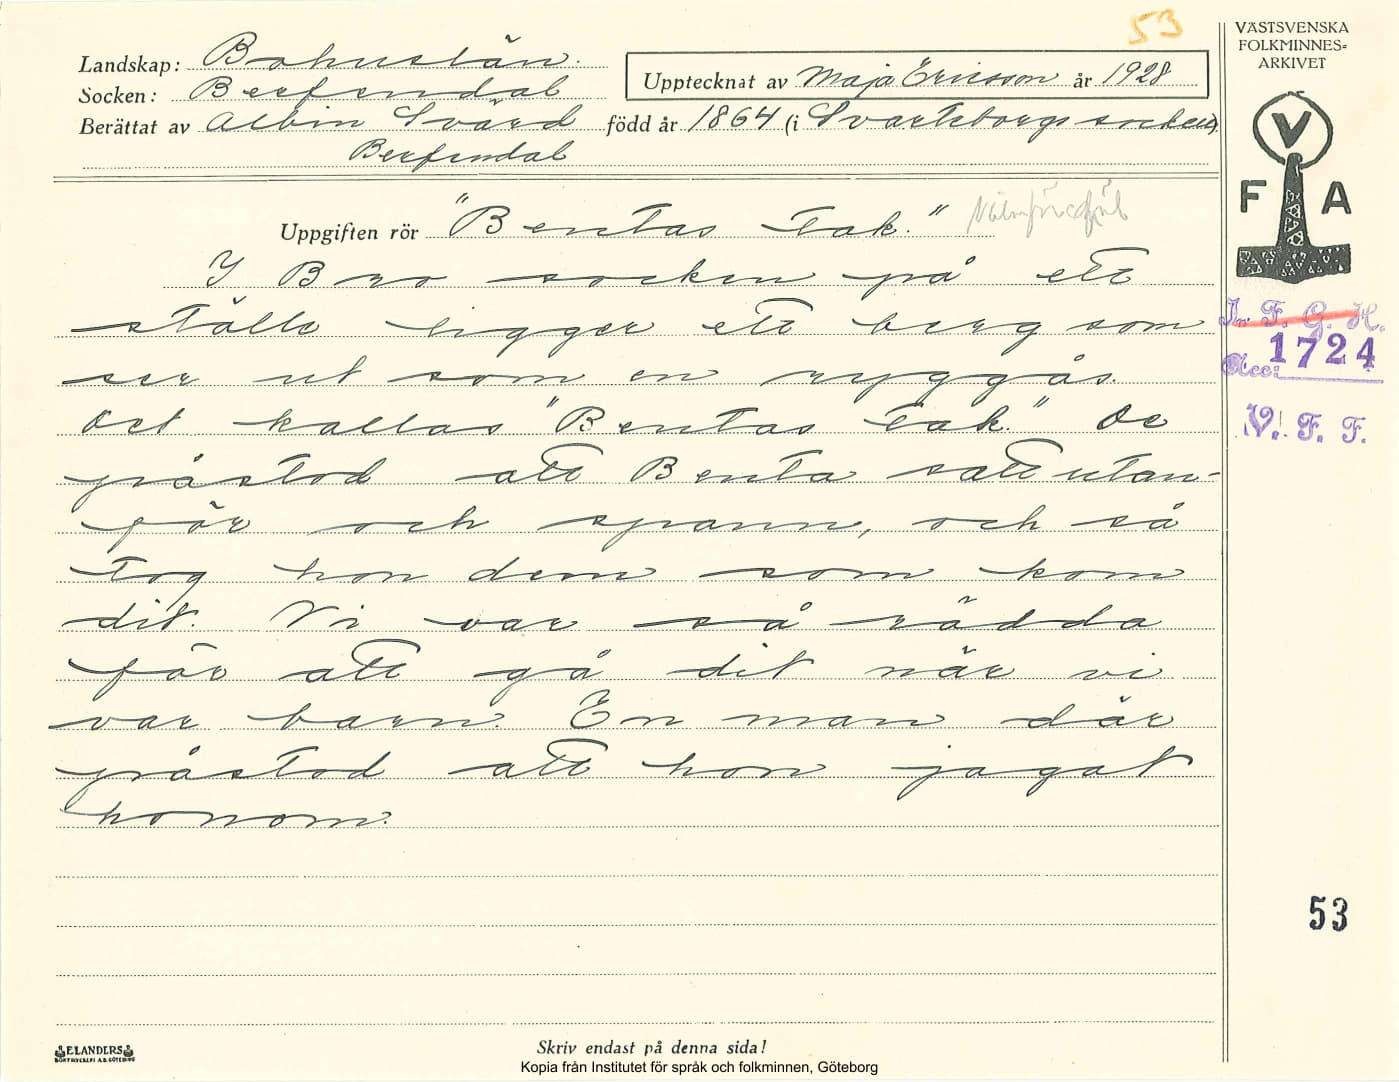 53
VÄSTSVENSKA
FOLKMINNES=
ARKIVET
Landskap: Bohuslän.
Upptecknat av Maja Ericsson år 1928
Socken: Berfendal
Berättat av Albin Svärd född år 1864 (i Svarteborgs socken)
Berfendal
V
F A
Uppgiften rör "Bentas tak."
I Bro socken på ett
ställe ligger ett berg som
ser ut som en ryggås.
Det kallas "Bentas tak." De
påstod att Benta satt utan-
för och spann, och så
tog hon dem som kom
dit. Vi var så rädda
för att gå dit när vi
var barn. En man där
påstod att hon jagat
honom.
I. F. G. H.
Acc: 1724
V. F. F.
53
ELANDERS
BOKTRYCKERI A.B. GÖTEBORG
Skriv endast på denna sida!
Kopia från Institutet för språk och folkminnen, Göteborg